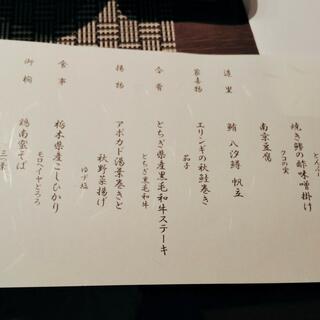 とんぶり
焼き鱒の酢味噌掛け
クコの実
南京豆腐
造里
鮪 八汐鱒 帆立
家喜物
エリンギの秋鮭巻き
茄子
合肴
とちぎ県産黒毛和牛ステーキ
とちぎ黒毛和牛
揚物
アボカド湯葉巻きと
秋野菜揚げ
ゆず塩
食事
栃木県産こしひかり
モロヘイヤとろろ
御椀
鶏南蛮そば
三つ葉